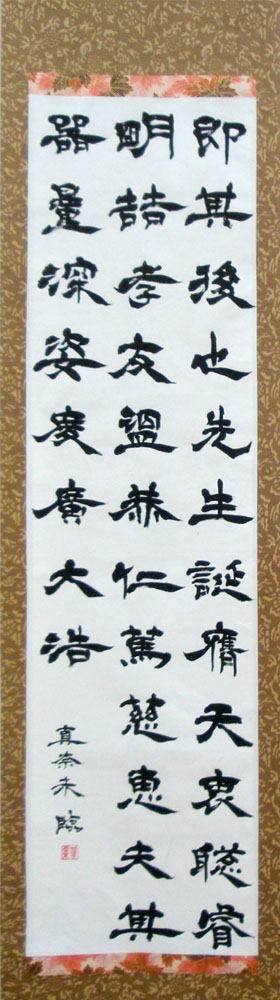 即其後也先生誕膺天衷聡睿
明喆孝友溫恭仁篤慈恵夫其
器量深姿度廣大浩
真奈未臨